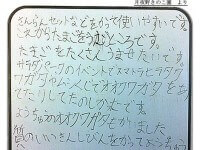 月夜野きのこ園 より
さんらんセットなどをかって使いやすいです。
これからたまごをうむところです。
たまごをたくさんうませたいです。
サラダパークのイベントでスマトラヒラタクワガタ
オオクワガタを
てたりしてたのしかったです。
ようちゅうのオオクワガタもかいました
質のいいきんしびんをかってよう